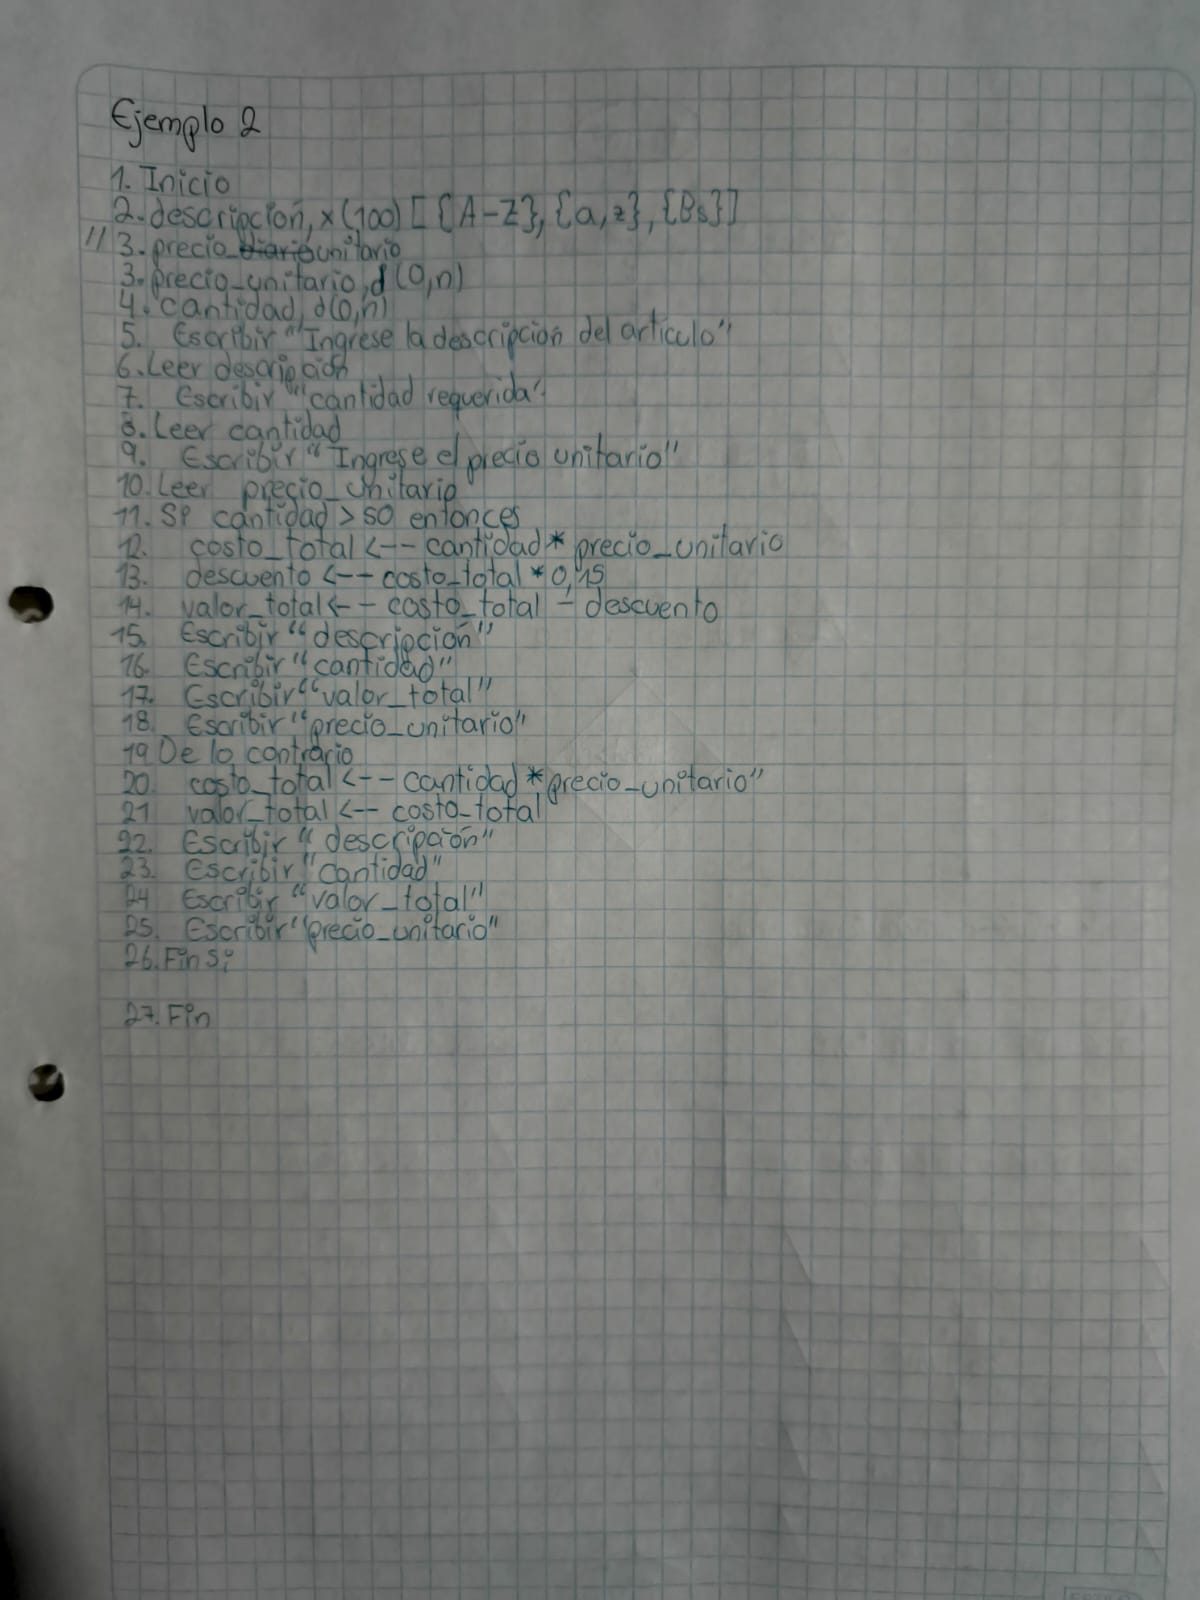 Ejemplo 2
1. Inicio
2. descripción, x(100) [ {A-Z}, {a,z}, {Bs}]
// 3. precio_diario unitario
3. precio_unitario, d(0,n)
4. cantidad, d(0,n)
5. Escribir "Ingrese la descripción del articulo"
6. Leer descripción
7. Escribir "cantidad requerida"
8. Leer cantidad
9. Escribir "Ingrese el precio unitario"
10. Leer precio_unitario
11. Si cantidad > 50 entonces
12. costo_total <-- cantidad * precio_unitario
13. descuento <-- costo_total * 0,15
14. valor_total <-- costo_total - descuento
15. Escribir "descripción"
16. Escribir "cantidad"
17. Escribir "valor_total"
18. Escribir "precio_unitario"
19. De lo contrario
20. costo_total <-- cantidad * precio_unitario"
21 valor_total <-- costo_total
22. Escribir "descripción"
23. Escribir "cantidad"
24 Escribir "valor_total"
25. Escribir "precio_unitario"
26. Fin Si
27. Fin